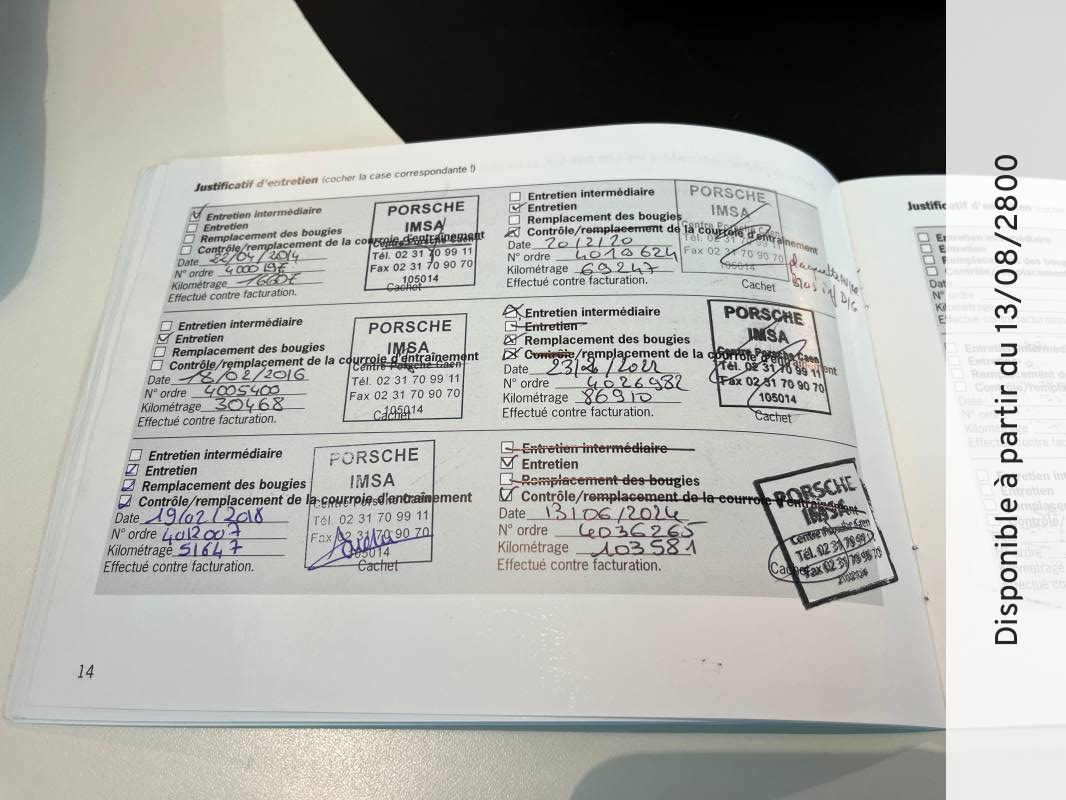 Justificatif d'entretien (cocher la case correspondante !)
Entretien intermédiaire
Entretien
Remplacement des bougies
Contrôle/remplacement de la courroie d'entraînement
Date 22/04/2014
N° ordre 4000196
Kilométrage
Effectué contre facturation.
PORSCHE
IMSA
Centre Porsche Caen
Tél. 02 31 70 99 11
Fax 02 31 70 90 70
105014
Cachet
Entretien intermédiaire
Entretien
Remplacement des bougies
Contrôle/remplacement de la courroie d'entraînement
Date 18/02/2016
N° ordre 4005400
Kilométrage 30468
Effectué contre facturation.
PORSCHE
IMSA
Centre Porsche Caen
Tél. 02 31 70 99 11
Fax 02 31 70 90 70
105014
Cachet
Entretien intermédiaire
Entretien
Remplacement des bougies
Contrôle/remplacement de la courroie d'entraînement
Date 19/02/2018
N° ordre 4012007
Kilométrage 51647
Effectué contre facturation.
PORSCHE
IMSA
Centre Porsche Caen
Tél. 02 31 70 99 11
Fax 02 31 70 90 70
105014
Cachet
Entretien intermédiaire
Entretien
Remplacement des bougies
Contrôle/remplacement de la courroie d'entraînement
Date 20/2/20
N° ordre 4019624
Kilométrage 69247
Effectué contre facturation.
PORSCHE
IMSA
Centre Porsche Caen
Tél. 02 31 70 99 11
Fax 02 31 70 90 70
105014
Cachet
Entretien intermédiaire
Entretien
Remplacement des bougies
Contrôle/remplacement de la courroie d'entraînement
Date
N° ordre 4026982
Kilométrage 86910
Effectué contre facturation.
PORSCHE
IMSA
Centre Porsche Caen
Tél. 02 31 70 99 11
Fax 02 31 70 90 70
105014
Cachet
Entretien intermédiaire
Entretien
Remplacement des bougies
Contrôle/remplacement de la courroie d'entraînement
Date 13/06/2024
N° ordre 4036265
Kilométrage 103581
Effectué contre facturation.
PORSCHE
IMSA
Centre Porsche Caen
Tél. 02 31 70 99 11
Fax 02 31 70 90 70
Cachet
14
Disponible à partir du 13/08/2800